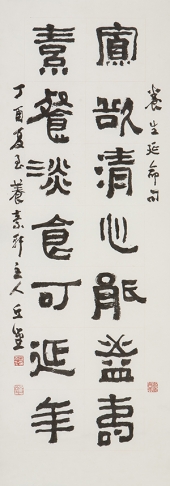 養生延命聯
寡欲清心能益壽
素餐淡食可延年
丁酉夏至養素軒主人丘堅